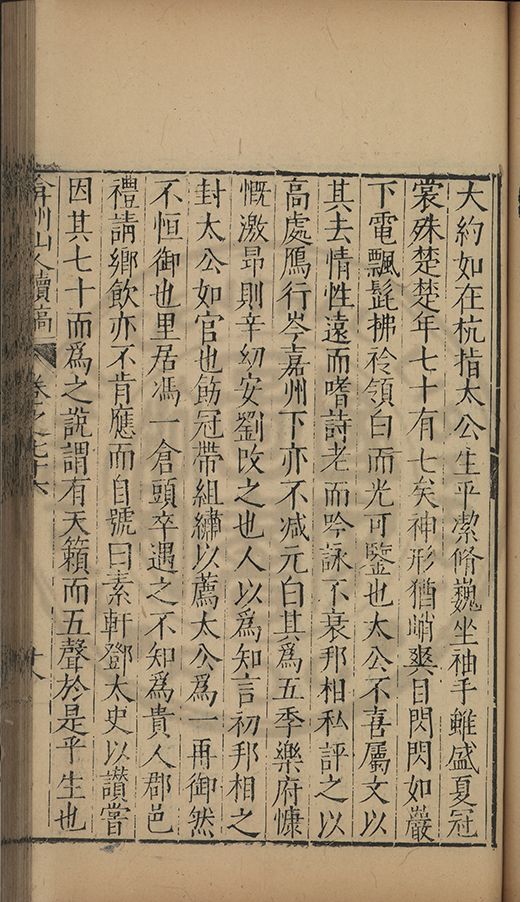 大約如在杭指太公生平潔脩巍坐袖手雖盛夏冠
裳殊楚楚年七十有七矣神形猶峭爽目閃閃如巖
下電飄髭拂衿領白而光可鑒也太公不喜屬文以
其去情性遠而嗜詩老而吟詠不衰邦相私評之以
高處鴈行岑嘉州下亦不减元白其爲五季樂府慷
慨激昂則辛幼安劉改之也人以爲知言初邦相之
封太公如官也飭冠帶組繡以薦太公爲一再御然
不恒御也里居馮一倉頭卒遇之不知爲貴人郡邑
禮請鄉飲亦不肯應而自號曰素軒鄧太史以讃嘗
因其七十而爲之說謂有天籟而五聲於是乎生也
弇州山人續稿 卷之七十六 十八